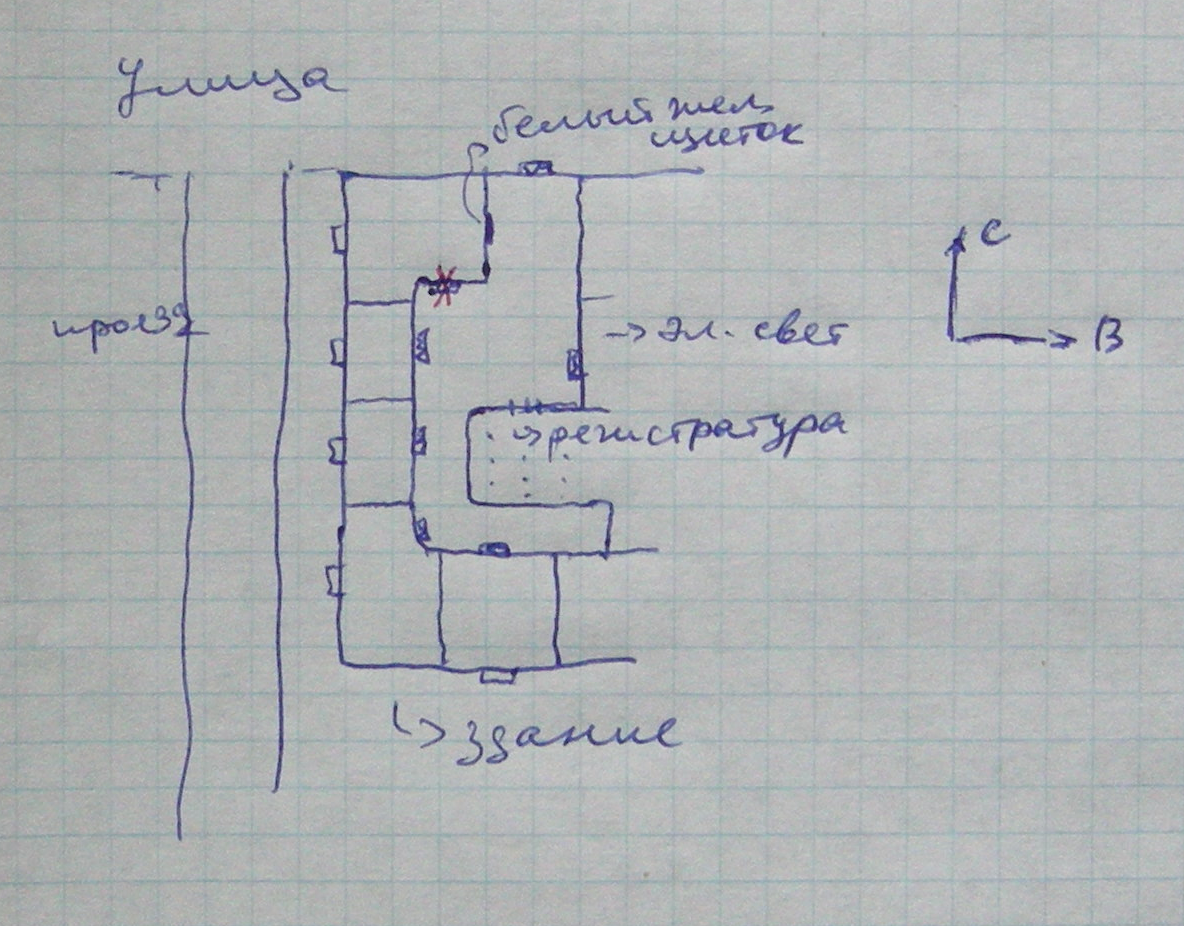 Улица
белый жел
щиток
С
проезд
эл. свет
В
регистратура
здание